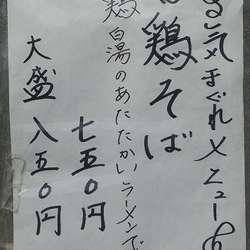 る気まぐれメニューあ
鶏そば
鶏白湯のあたたかいラーメンで
七五〇円
大盛 八五〇円